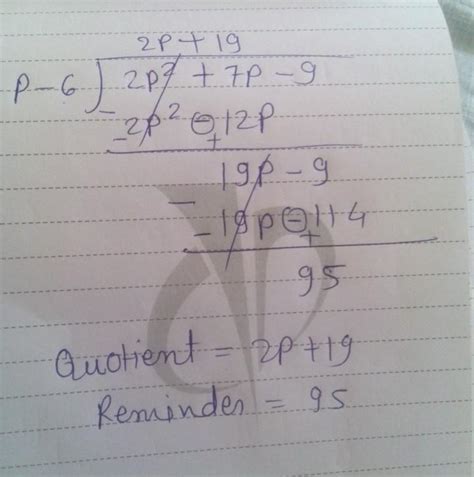 2p + 19
p - 6 ) 2p² + 7p - 9
- 2p² ⊖ 12p
+
19p - 9
- 19p ⊖ 114
+
95
Quotient = 2p + 19
Reminder = 95